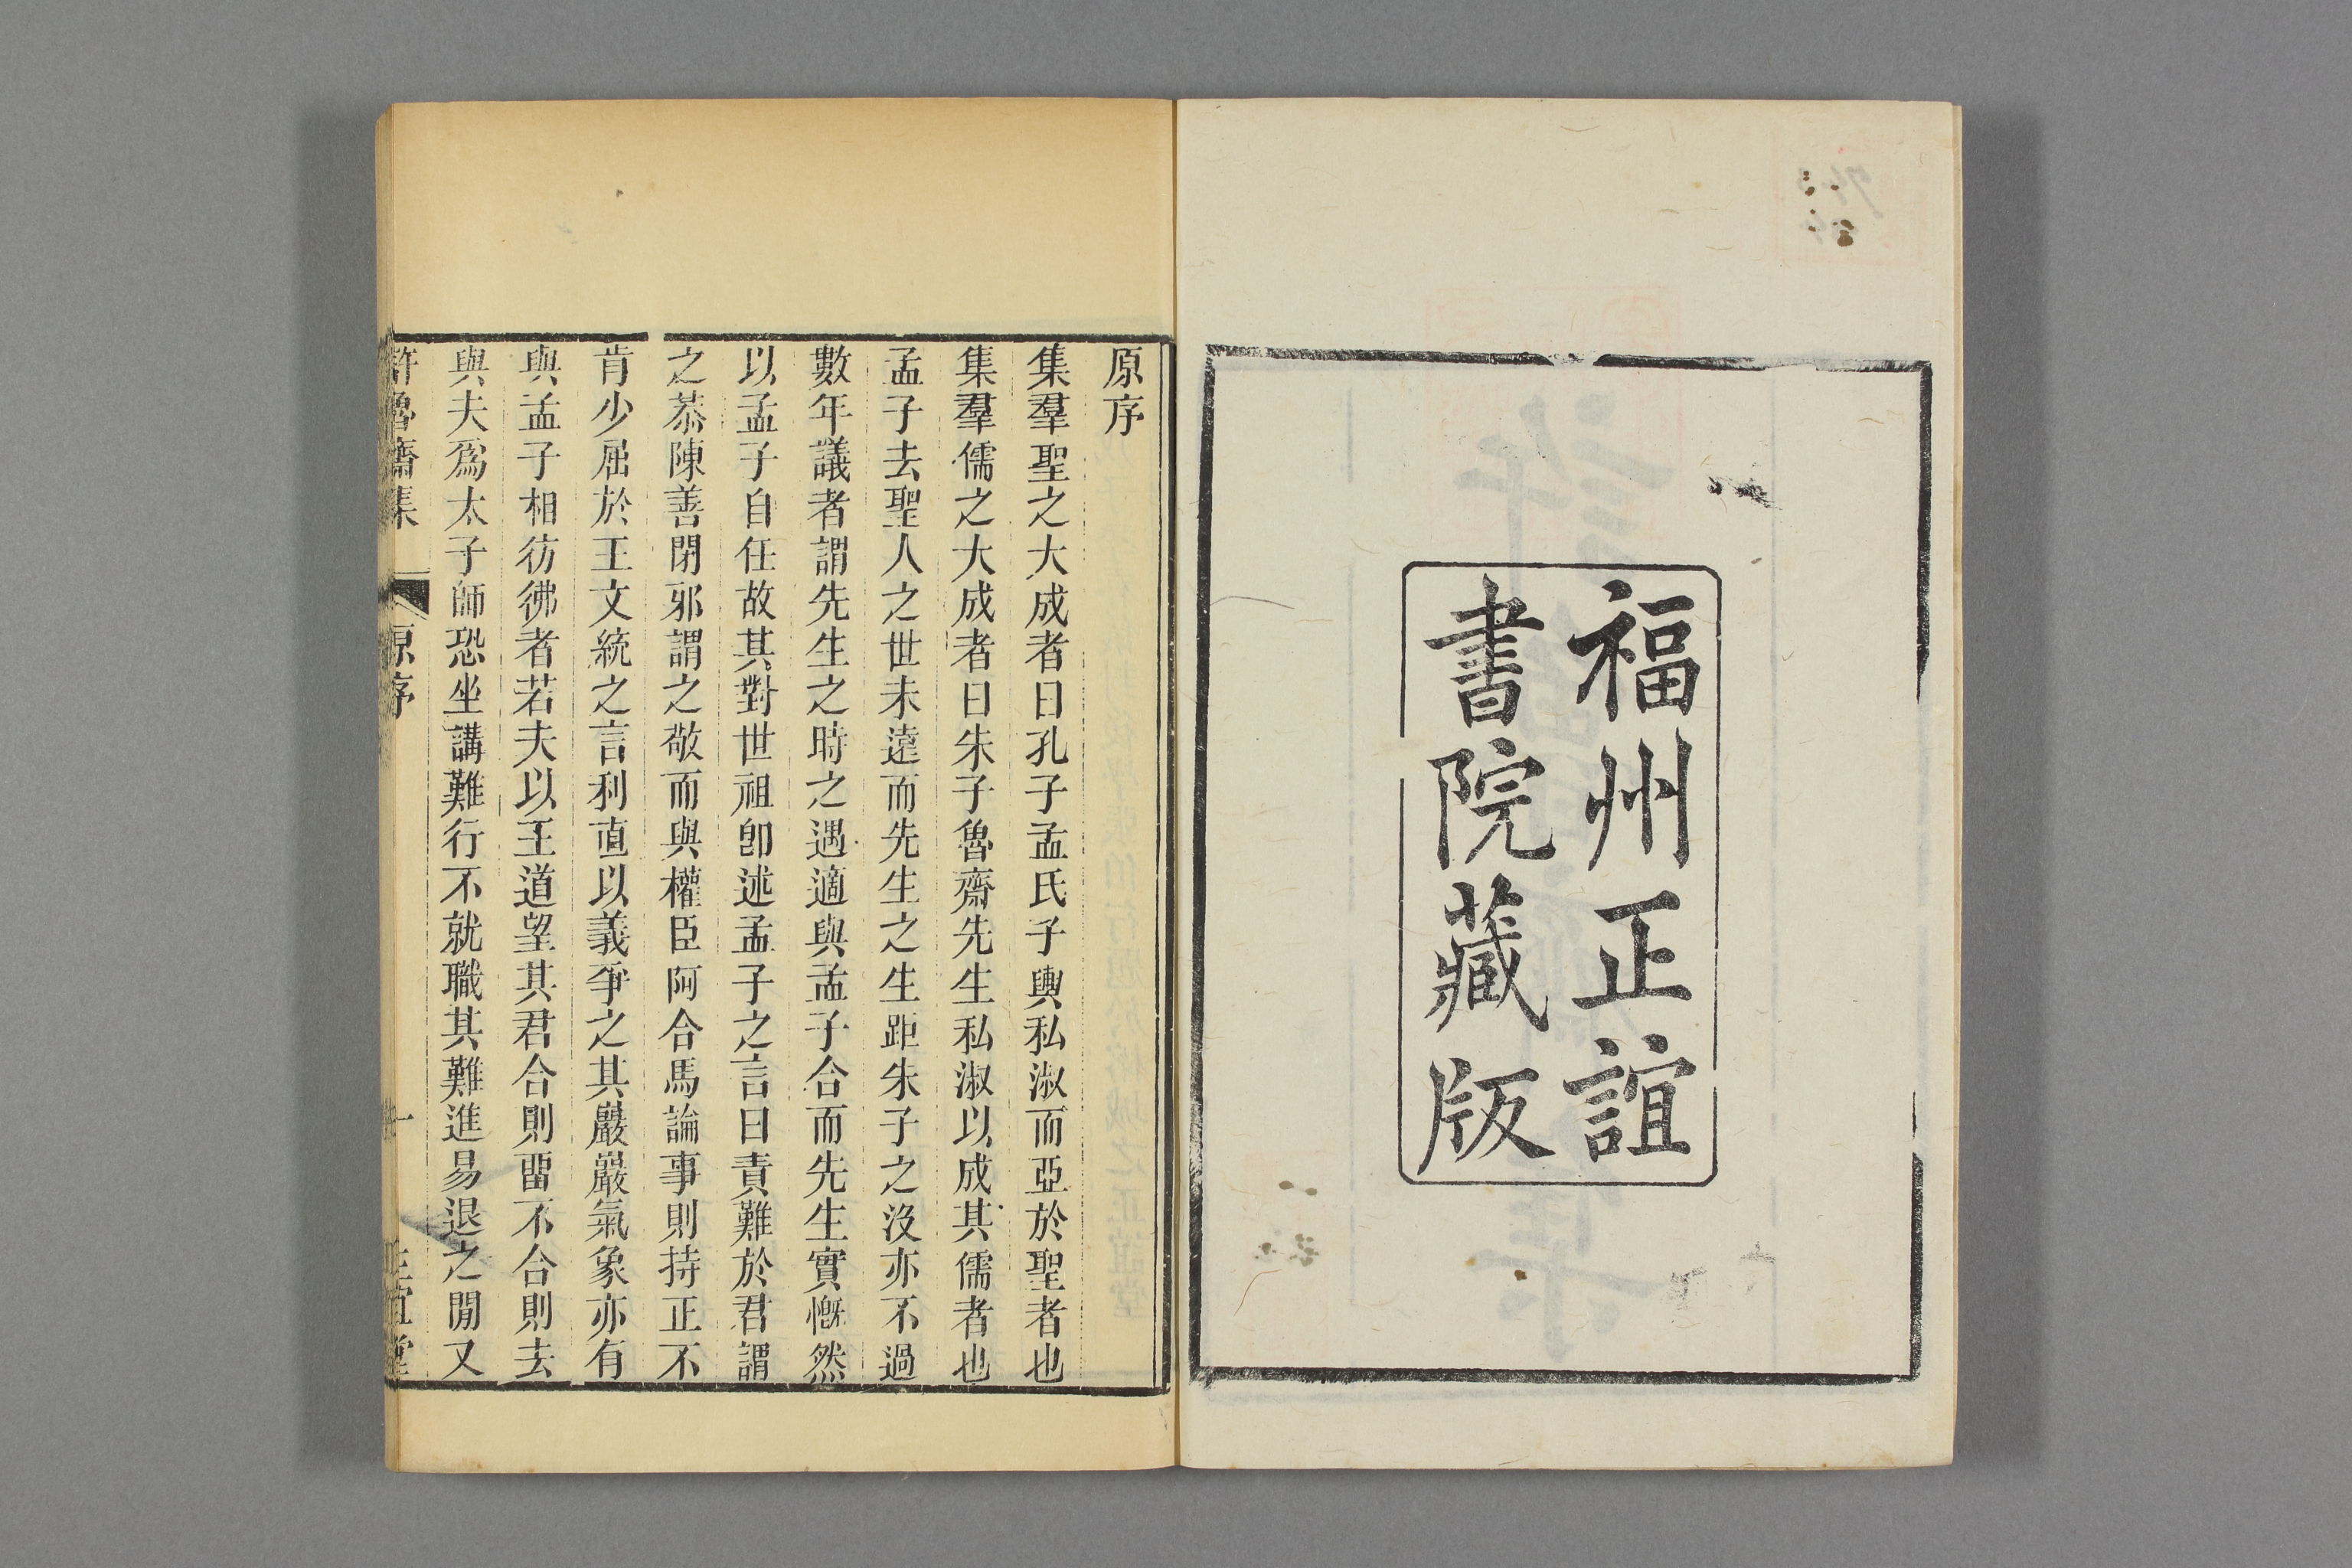 福州正誼
書院藏版
原序
集羣聖之大成者曰孔子孟氏子輿私淑而亞於聖者也
集羣儒之大成者曰朱子魯齋先生私淑以成其儒者也
孟子去聖人之世未遠而先生之生距朱子之沒亦不過
數年議者謂先生之時之遇適與孟子合而先生實慨然
以孟子自任故其對世祖卽述孟子之言曰責難於君謂
之恭陳善閉邪謂之敬而與權臣阿合馬論事則持正不
肯少屈於王文統之言利直以義爭之其嚴嚴氣象亦有
與孟子相彷彿者若夫以王道望其君合則畱不合則去
與夫爲太子師恐坐講難行不就職其難進易退之閒又
許魯齋集 原序 一 正誼堂